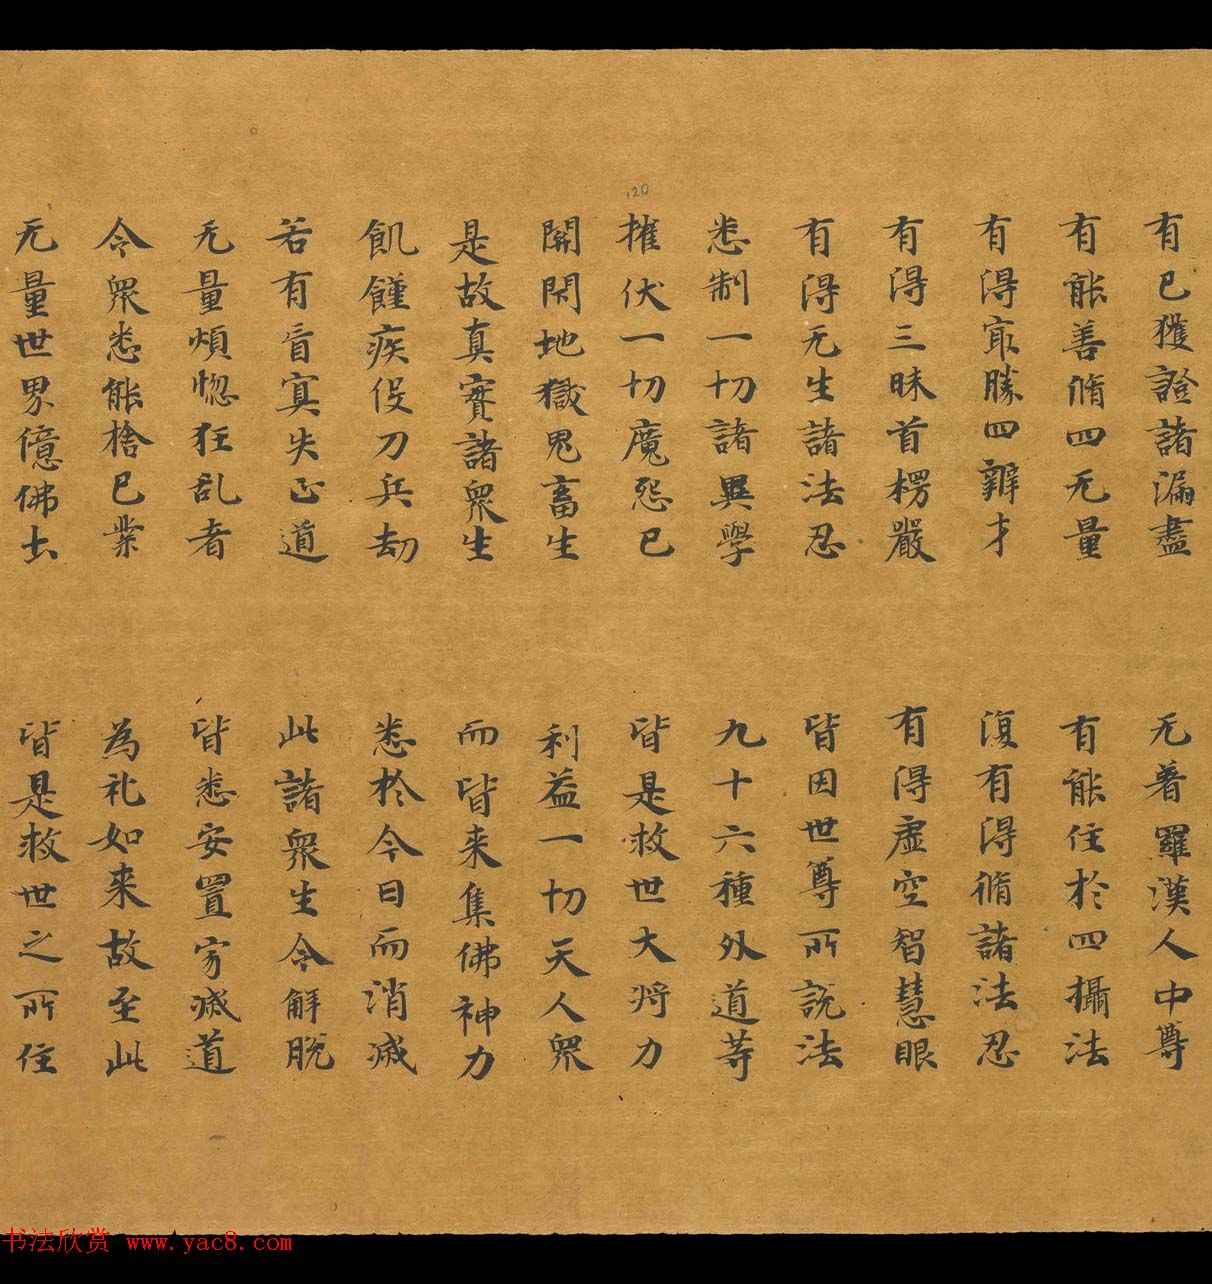 有已獲證諸漏盡 无著羅漢人中尊
有能善脩四无量 有能住於四攝法
有得冣勝四辯才 復有得脩諸法忍
有得三昧首楞嚴 有得虛空智慧眼
有得无生諸法忍 皆因世尊所說法
悉制一切諸異學 九十六種外道等
摧伏一切魔怨已 皆是救世大將力
開閇地獄鬼畜生 利益一切天人眾
是故真實諸眾生 而皆来集佛神力
飢饉疾疫刀兵劫 悉於今日而消滅
若有盲冥失正道 此諸眾生令解脫
无量煩惱狂乱者 皆悉安置寂滅道
令眾悉能捨已業 為礼如来故至此
无量世界億佛土 皆是救世之所住
120
书法欣赏 www.yac8.com